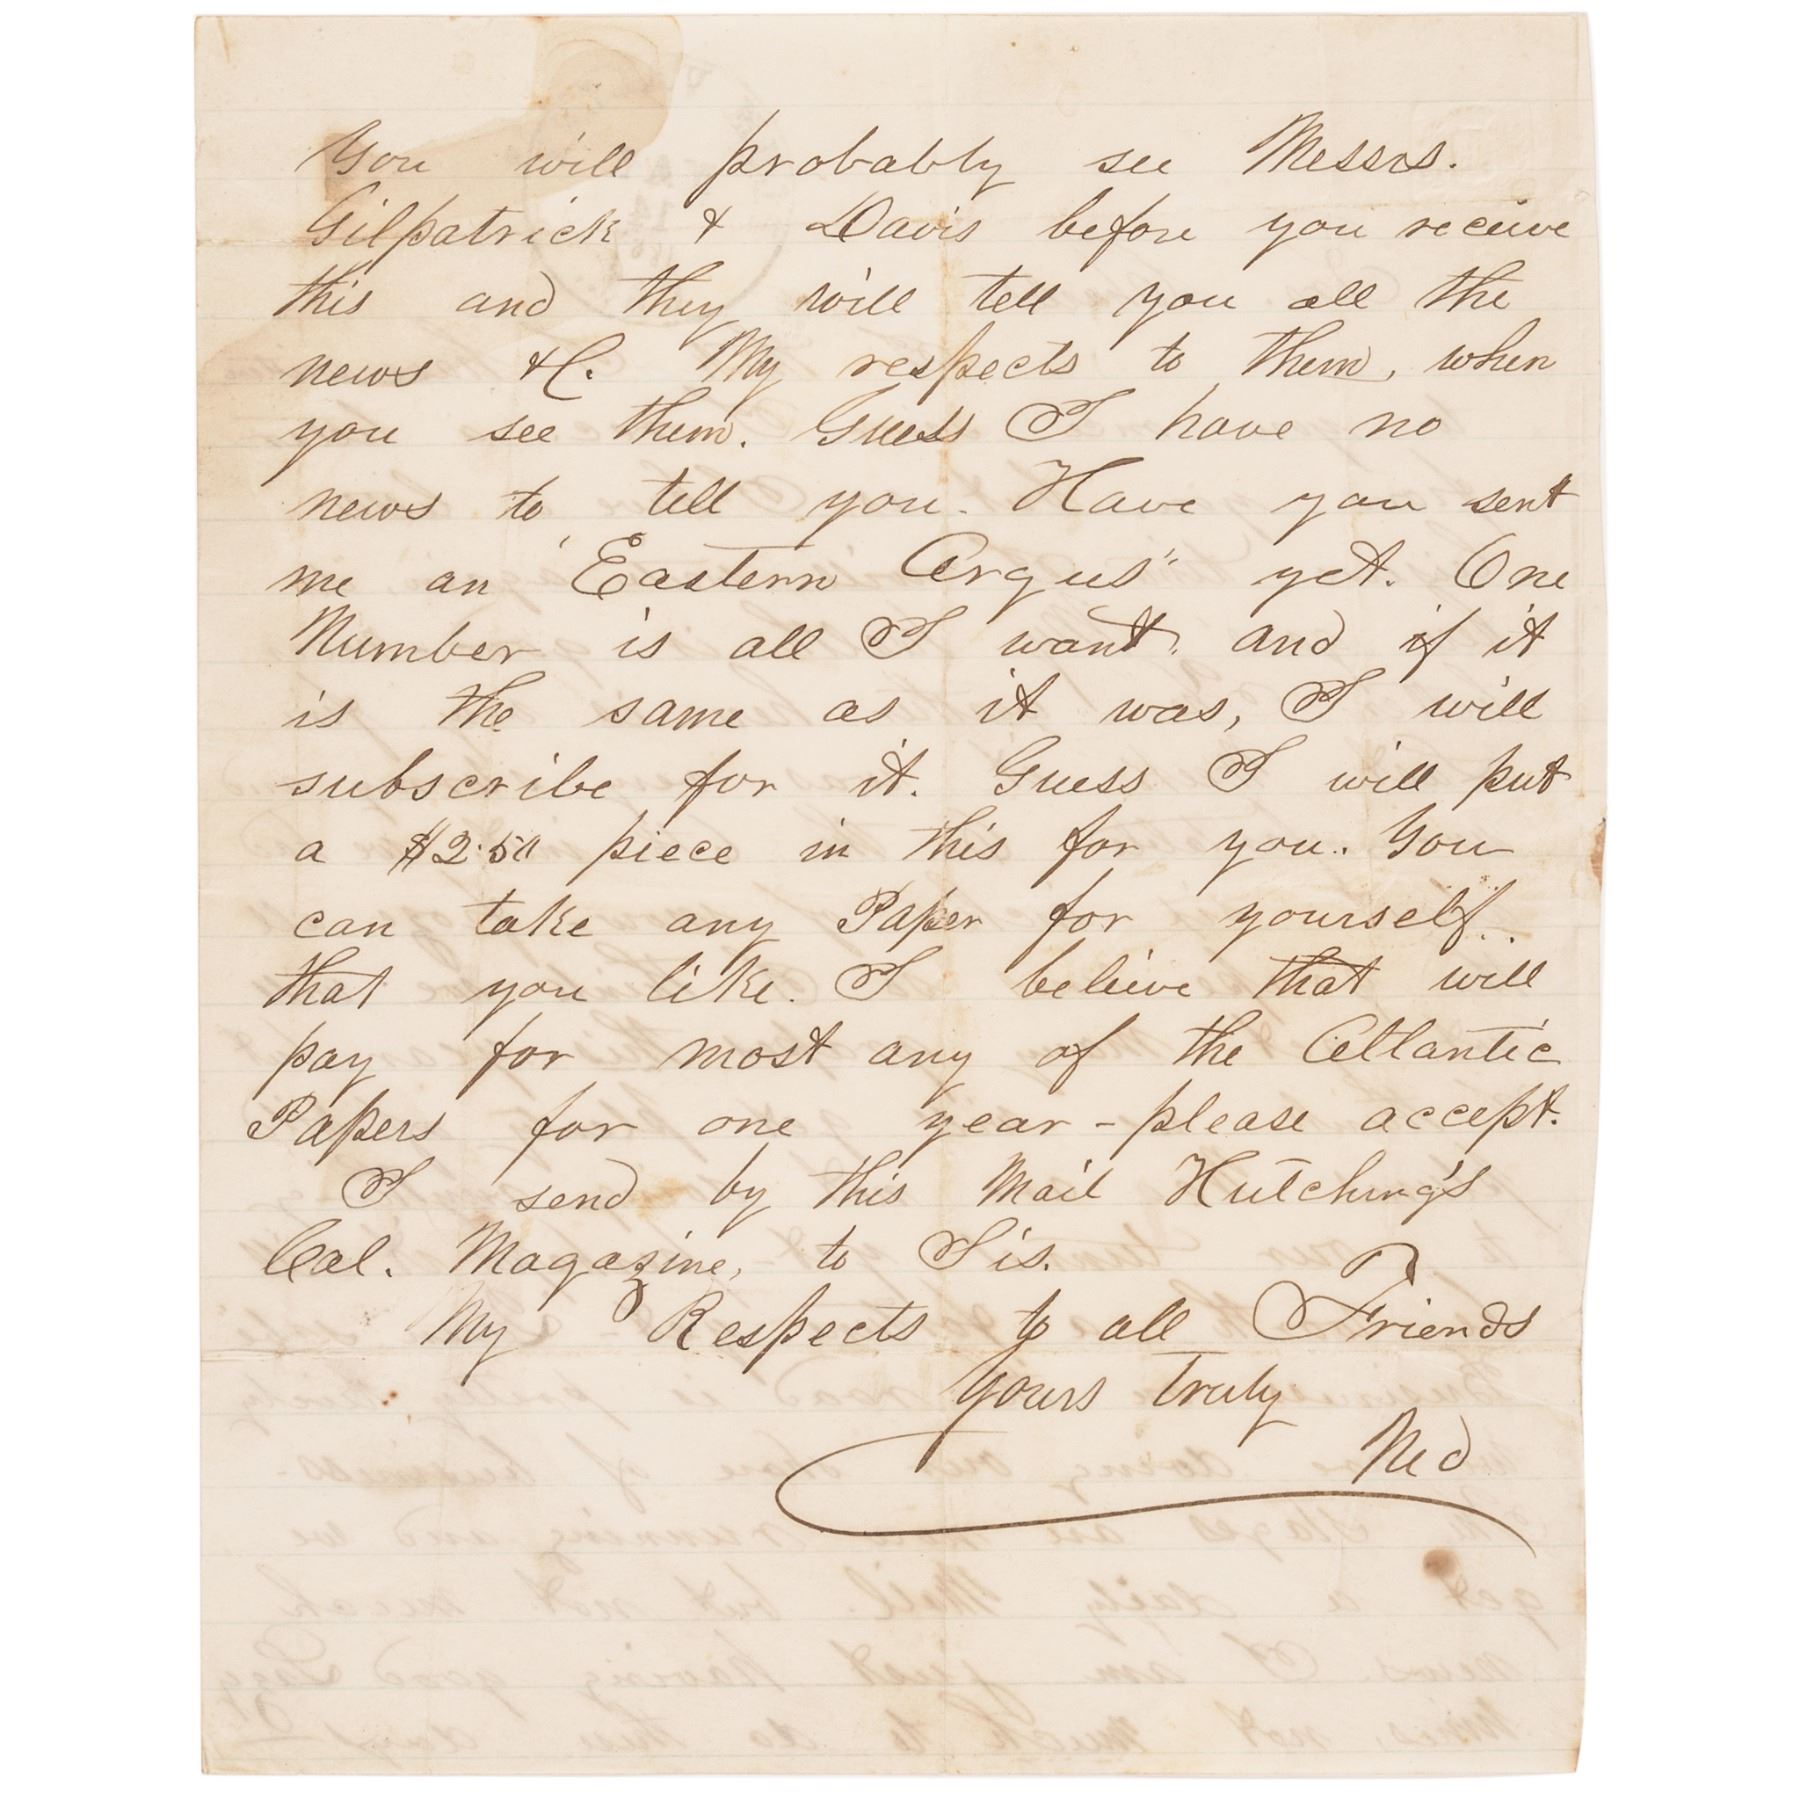 You will probably see Messrs.
Gilpatrick & Davis before you receive
this and they will tell you all the
news &C. My respects to them, when
you see them. Guess I have no
news to tell you. Have you sent
me an "Eastern Argus" yet. One
Number is all I want, and if it
is the same as it was, I will
subscribe for it. Guess I will put
a $2.50 piece in this for you. You
can take any Paper for yourself
that you like. I believe that will
pay for most any of the Atlantic
Papers for one year - please accept.
I send by this Mail Hutching's
Cal. Magazine, to Sis.
My Respects to all Friends
Yours Truly
Ned